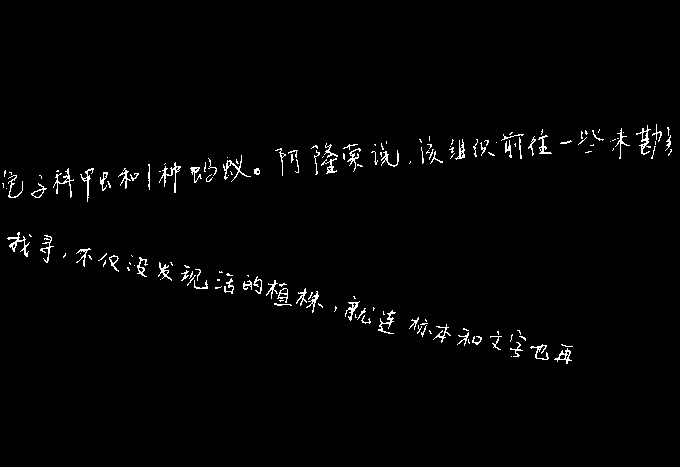 子科甲虫和1种蚂蚁。阿隆索说,该组织前往一些未勘
找寻,不仅没发现活的植株,就连标本和文字也再